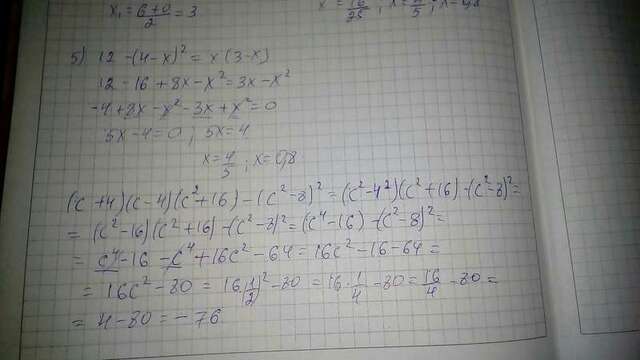 x₁ = (6+0)/2 = 3
5) 12 - (4-x)² = x(3-x)
12 - 16 + 8x - x² = 3x - x²
-4 + 8x - x² - 3x + x² = 0
5x - 4 = 0 ; 5x = 4
x = 4/5 ; x = 0,8
(c+4)(c-4)(c²+16) - (c²-8)² = (c²-4²)(c²+16) - (c²-8)² =
= (c²-16)(c²+16) - (c²-8)² = (c⁴-16) - (c²-8)² =
= c⁴ - 16 - c⁴ + 16c² - 64 = 16c² - 16 - 64 =
= 16c² - 80 = 16·(1/2)² - 80 = 16·1/4 - 80 = 16/4 - 80 =
= 4 - 80 = -76